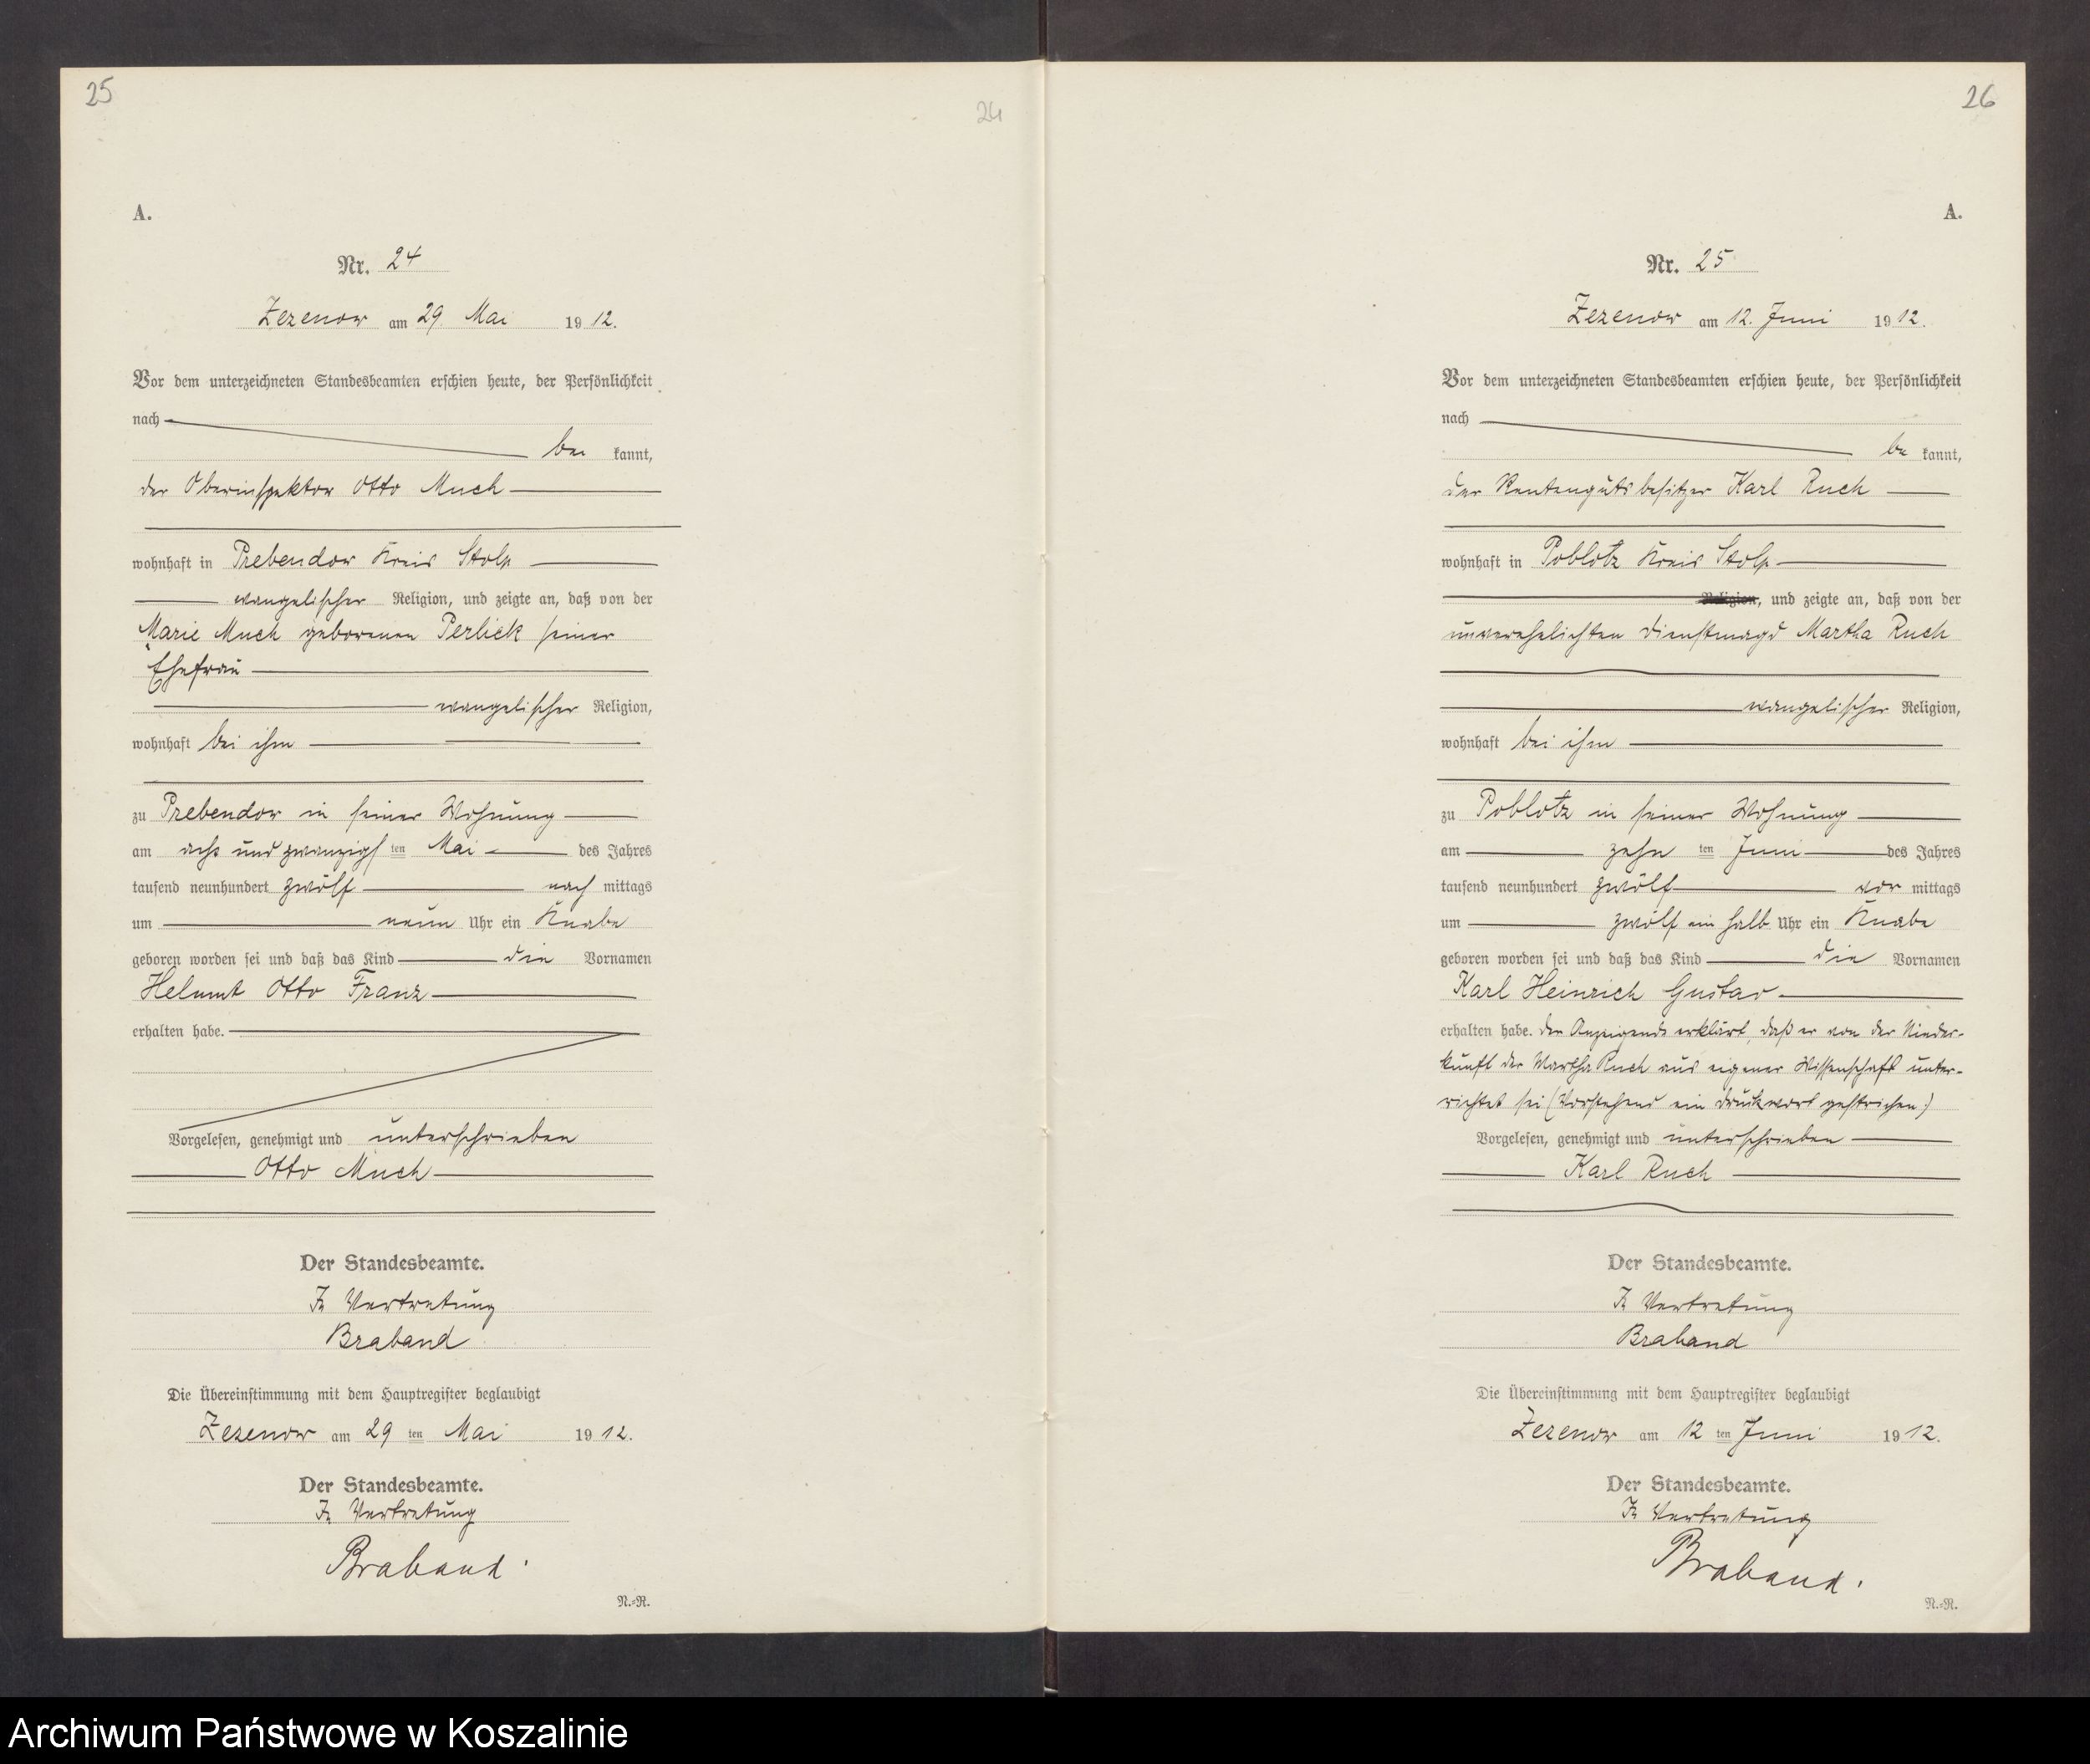 25
24
A.
Nr. 24
Zezenow am 29. Mai 1912.
Vor dem unterzeichneten Standesbeamten erschien heute, der Persönlichkeit
nach
be kannt,
der Oberinspektor Otto Much
wohnhaft in Prebendow Kreis Stolp
evangelischer Religion, und zeigte an, daß von der
Marie Much geborenen Perlick seiner
Ehefrau
evangelischer Religion,
wohnhaft bei ihm
zu Prebendow in seiner Wohnung
am acht und zwanzigsten Mai des Jahres
tausend neunhundert zwölf nach mittags
um neun Uhr ein Knabe
geboren worden sei und daß das Kind die Vornamen
Helmut Otto Franz
erhalten habe.
Vorgelesen, genehmigt und unterschrieben
Otto Much
Der Standesbeamte.
In Vertretung
Braband
Die Übereinstimmung mit dem Hauptregister beglaubigt
Zezenow am 29 ten Mai 1912.
Der Standesbeamte.
In Vertretung
Braband.
N.-R.
26
A.
Nr. 25
Zezenow am 12. Juni 1912.
Vor dem unterzeichneten Standesbeamten erschien heute, der Persönlichkeit
nach
be kannt,
der Rentengutsbesitzer Karl Ruch
wohnhaft in Poblotz Kreis Stolp
Religion, und zeigte an, daß von der
unverehelichten Dienstmagd Martha Ruch
evangelischer Religion,
wohnhaft bei ihm
zu Poblotz in seiner Wohnung
am zehn ten Juni des Jahres
tausend neunhundert zwölf vor mittags
um zwölf ein halb Uhr ein Knabe
geboren worden sei und daß das Kind die Vornamen
Karl Heinrich Gustav
erhalten habe. Der Anzeigende erklärt, daß er von der Nieder-
kunft der Martha Ruch aus eigener Wissenschaft unter-
richtet sei (Vorstehend ein Druckwort gestrichen)
Vorgelesen, genehmigt und unterschrieben
Karl Ruch
Der Standesbeamte.
In Vertretung
Braband
Die Übereinstimmung mit dem Hauptregister beglaubigt
Zezenow am 12 ten Juni 1912.
Der Standesbeamte.
In Vertretung
Braband.
N.-R.
Archiwum Państwowe w Koszalinie